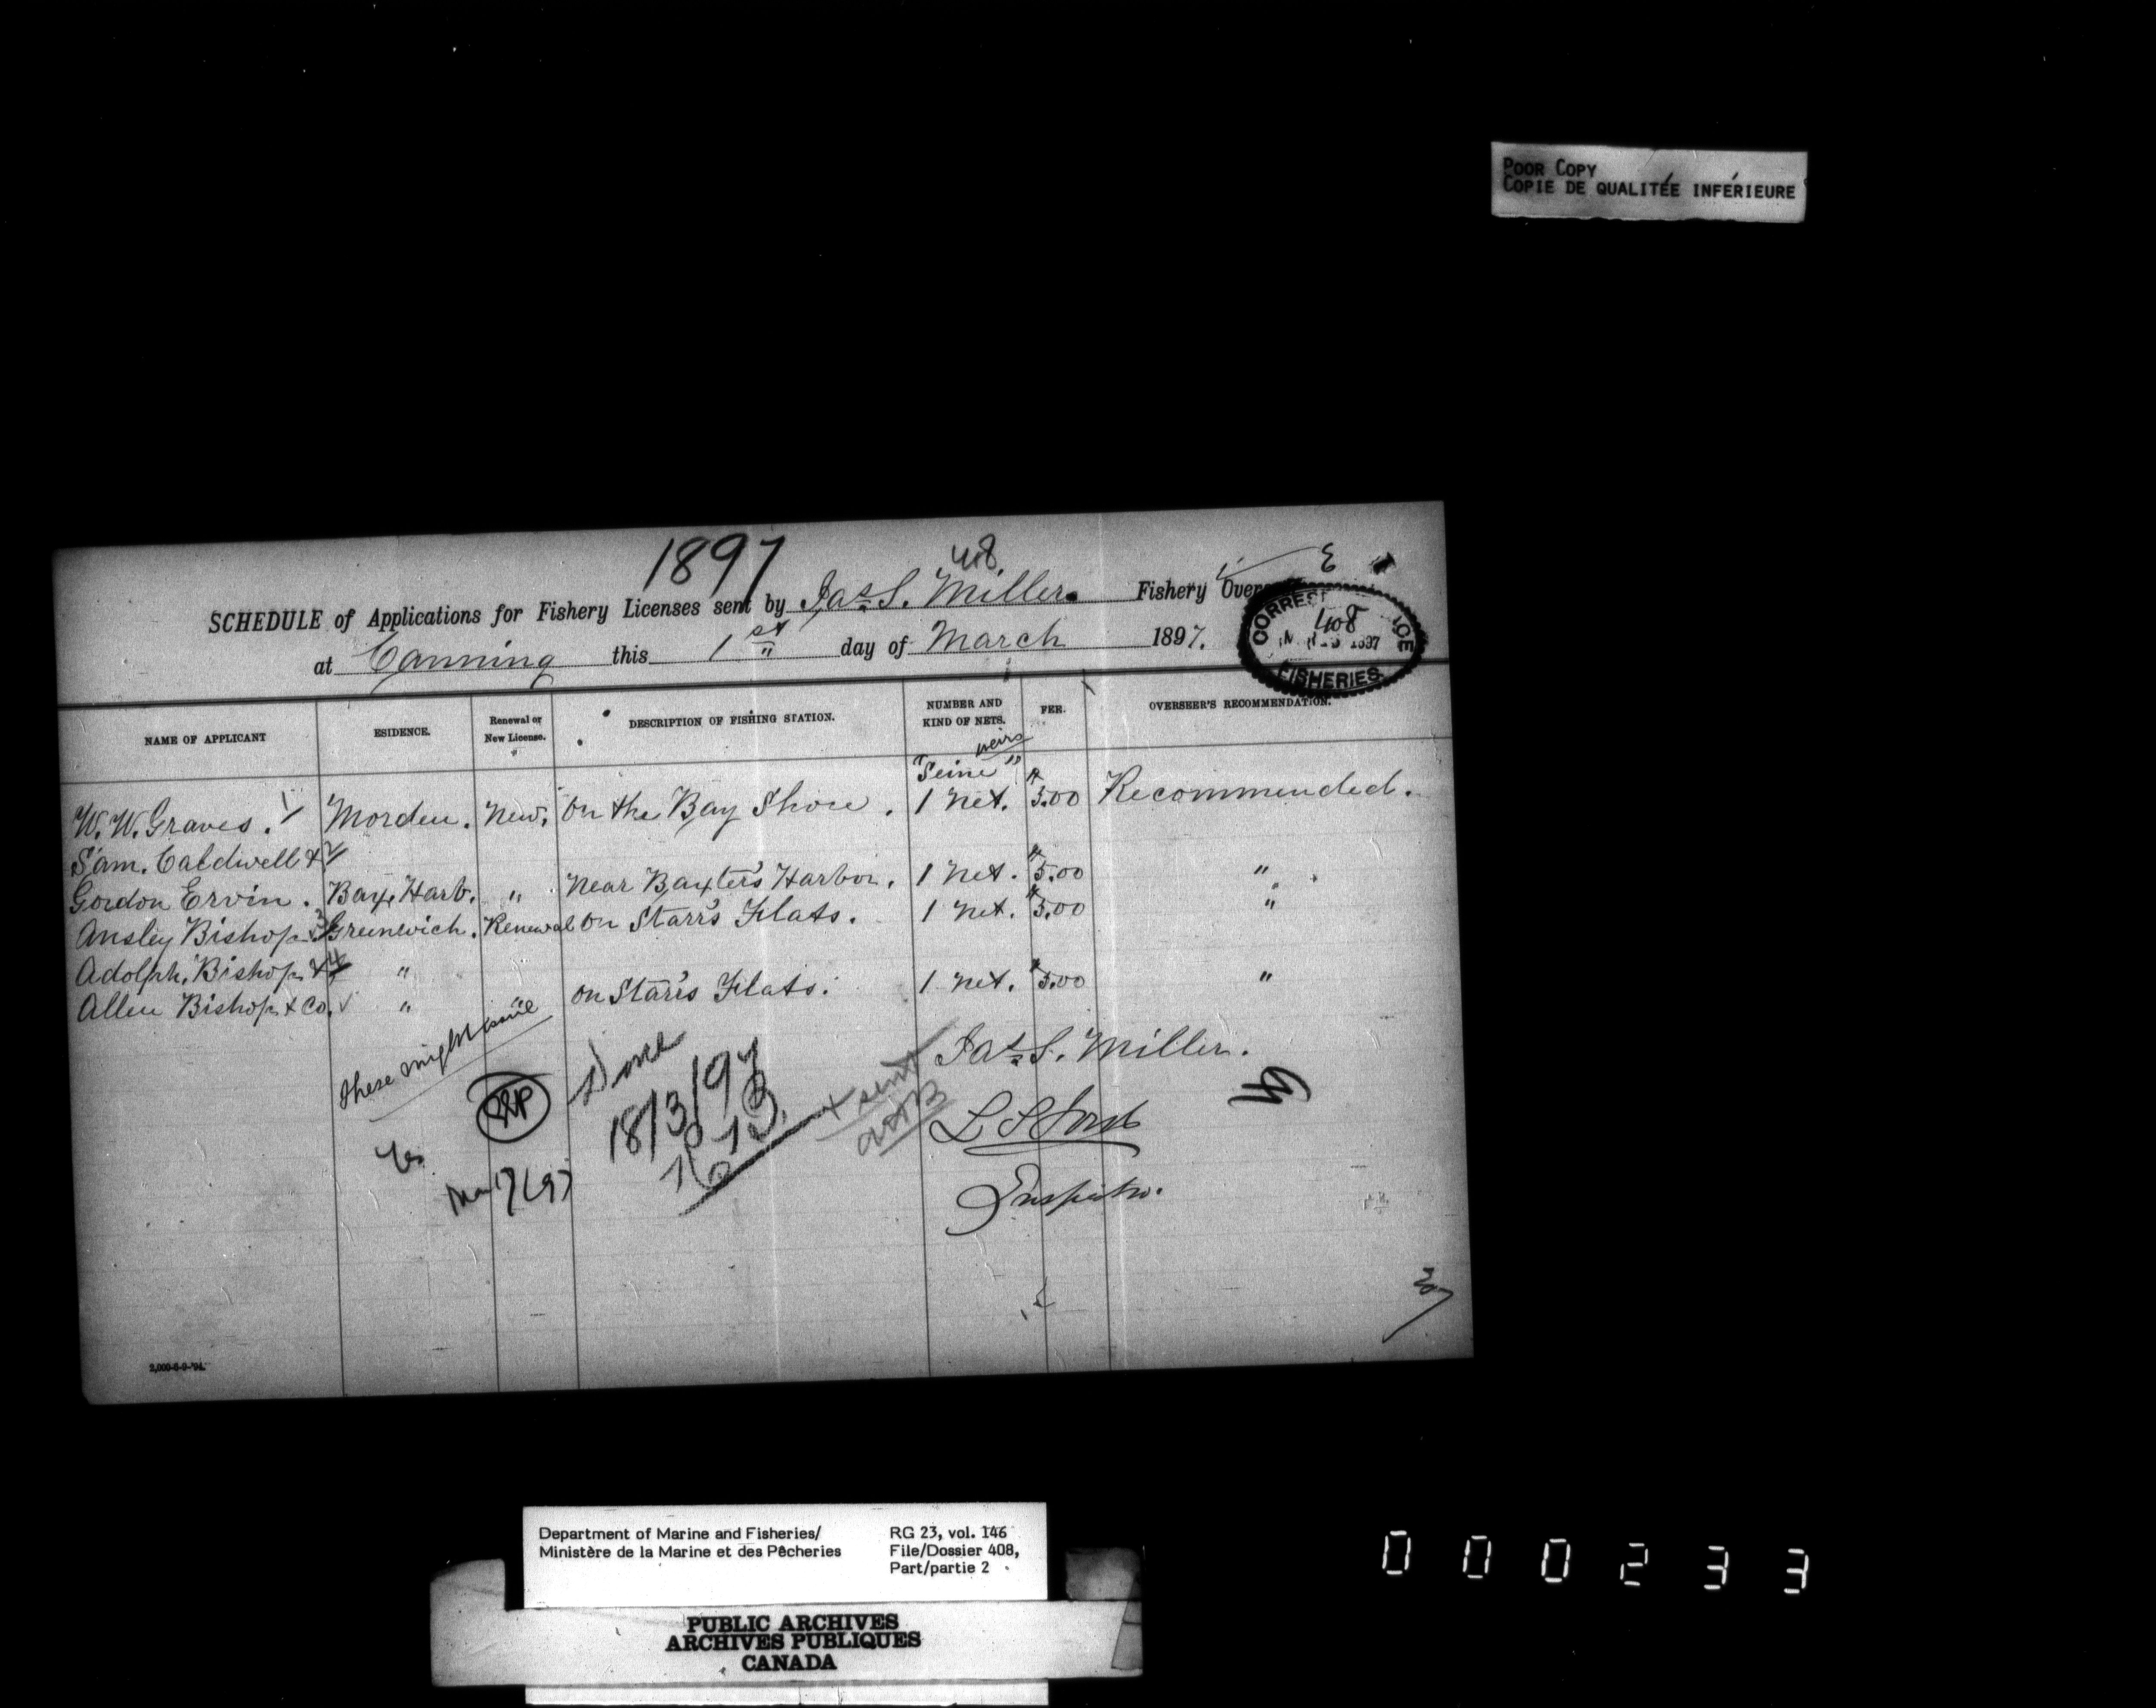 POOR COPY
COPIE DE QUALITÉE INFÉRIEURE
1897
408
SCHEDULE of Applications for Fishery Licenses sent by Jas. S. Miller. Fishery Over
at Canning this 1st day of March 1897.
CORRES CE
408
1897
FISHERIES
NAME OF APPLICANT ESIDENCE. Renewal or New License. DESCRIPTION OF FISHING STATION. NUMBER AND KIND OF NETS. FEE. OVERSEER'S RECOMMENDATION.
weirs
"Seine"
W. W. Graves. 1/ Morden. New. On the Bay Shore. 1 Net. $5.00 Recommended.
Sam. Caldwell & 2/
Gordon Ervin. Bax. Harb. " Near Baxter's Harbor. 1 Net. $5.00 "
Ansley Bishop 3/ Greenwich. Renewal On Starr's Flats. 1 Net. $5.00 "
Adolph. Bishop & 4/ "
Allen Bishop & Co. " On Starr's Flats. 1 Net. $5.00 "
these might issue
Done
18/3/97
+ sent
Jas. S. Miller.
Inspector.
Yes
Mar 17/97
2,000-6-9-'94.
Department of Marine and Fisheries/
Ministère de la Marine et des Pêcheries
RG 23, vol. 146
File/Dossier 408,
Part/partie 2
PUBLIC ARCHIVES
ARCHIVES PUBLIQUES
CANADA
000233